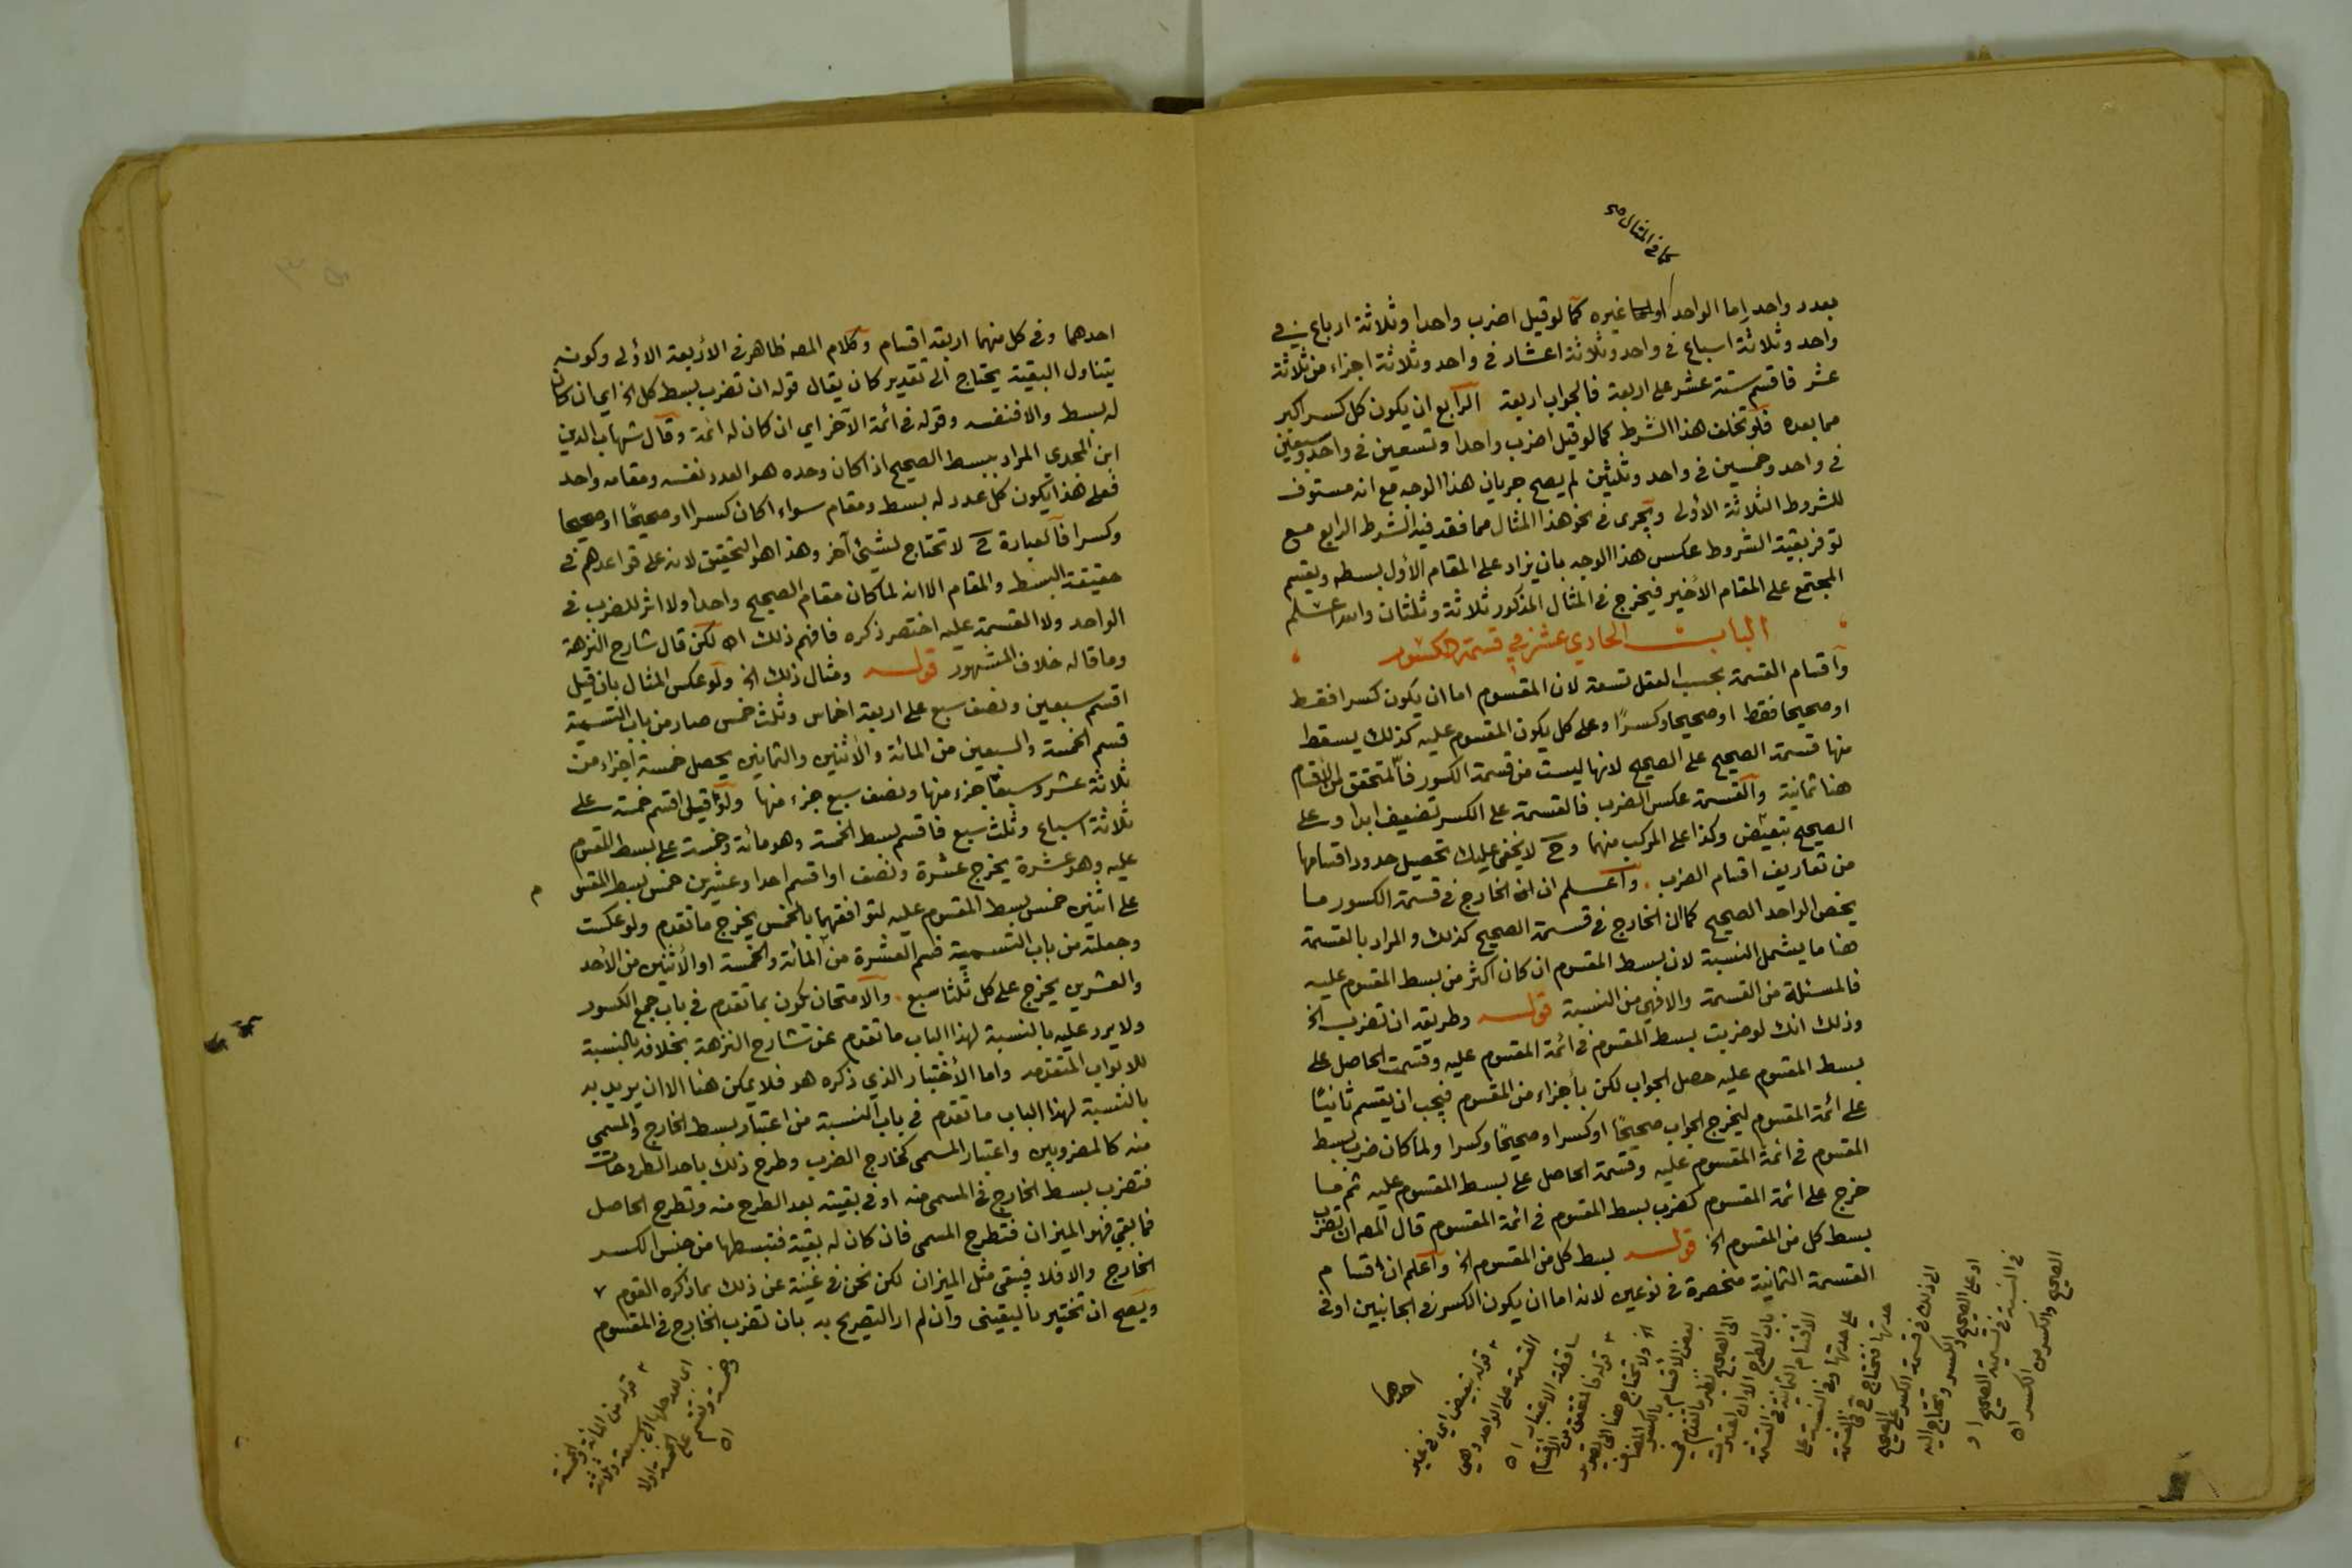 كما في المثال صح
بعدد واحد اما الواحد او غيره كما لو قيل اضرب واحدا وثلاثة ارباع في
واحد وثلاثة اسباع في واحد وثلاثة اعشار في واحد وثلاثة اجزاء من ثلاثة
عشر فاقسم ستة عشر على اربعة فالجواب اربعة الرابع ان يكون كل كسر اكبر
مما بعده فلو تخلف هذا الشرط كما لو قيل اضرب واحدا وتسعين في واحد وسبعين
في واحد وخمسين في واحد وثلثين لم يصح جريان هذا الوجه مع انه مستوف
للشروط الثلاثة الأولى ويجرى في نحو هذا المثال مما فقد فيه الشرط الرابع مع
توفر بقية الشروط عكس هذا الوجه بان يزاد على المقام الأول بسطه ويقسم
المجتمع على المقام الاخير فيخرج في المثال المذكور ثلاثة وثلثان والله اعلم
الباب الحادي عشر في قسمة الكسور
وأقسام القسمة بحسب العقل تسعة لان المقسوم اما ان يكون كسرا فقط
او صحيحا فقط او صحيحا وكسرًا وعلى كل يكون المقسوم عليه كذلك يسقط
منها قسمة الصحيح على الصحيح لانها ليست من قسمة الكسور فالمتحقق من الاقسام
هنا ثمانية والقسمة عكس الضرب فالقسمة على الكسر تضعيف ابدا وعلى
الصحيح تبعيض وكذا على المركب منهما وح لا يخفى عليك تحصيل حدود اقسامها
من تعاريف اقسام الضرب. واعلم ان الخارج في قسمة الكسور ما
يخص الواحد الصحيح كما ان الخارج في قسمة الصحيح كذلك والمراد بالقسمة
هنا ما يشمل النسبة لان بسط المقسوم ان كان اكثر من بسط المقسوم عليه
فالمسئلة من القسمة والا فهي من النسبة قوله وطريقه ان تضرب الخ
وذلك انك لو ضربت بسط المقسوم في ائمة المقسوم عليه وقسمت الحاصل على
بسط المقسوم عليه حصل الجواب لكن بأجزاء من المقسوم فيجب ان يقسم ثانيًا
على ائمة المقسوم ليخرج الجواب صحيحًا او كسرا او صحيحًا وكسرا ولما كان ضرب بسط
المقسوم في ائمة المقسوم عليه وقسمة الحاصل على بسط المقسوم عليه ثم ما
خرج على ائمة المقسوم كضرب بسط المقسوم في ائمة المقسوم قال المصه ان تضرب
بسط كل من المقسوم الخ قوله بسط كل من المقسوم الخ واعلم ان اقسام
القسمة الثمانية منحصرة في نوعين لانه اما ان يكون الكسر في الجانبين او في
احدهما
قوله تبعيض اي في غير
القسمة على الواحد وهي
ساقطة الاعتبار اه
قوله فالمتحقق من الاقسام
الخ ولا تحتاج هنا الى
بعض الاقسام
الى الصحيح نظير ما تقدم في
باب الطرح
الاقسام الثمانية في القسمة
على حدتها وفي النسبة على
حدتها فتحتاج ح في القسمة
الى ذلك في قسمة الكسر على الصحيح
او على الصحيح والكسر وتحتاج اليه
في النسبة في تسمية الصحيح او
الصحيح والكسر من الكسر اه
احدهما وفي كل منهما اربعة اقسام وكلام المصه ظاهر في الأربعة الأولى وكونه
يتناول البقية يحتاج الى تقدير كان يقال قوله ان تضرب بسط كل الخ اي ان كان
له بسط والا فنفسه وقوله في ائمة الآخر اي ان كان له ائمة وقال شهاب الدين
ابن المجدي المراد ببسط الصحيح اذا كان وحده هو العدد نفسه ومقامه واحد
فعلى هذا يكون كل عدد له بسط ومقام سواء اكان كسرا او صحيحًا او صحيحا
وكسرا فالعبارة ح لا تحتاج لشيئ آخر وهذا هو التحقيق لانه على قواعدهم في
حقيقة البسط والمقام الا انه لما كان مقام الصحيح واحدا ولا اثر للضرب في
الواحد ولا القسمة عليه اختصر ذكره فافهم ذلك اه لكن قال شارح النزهة
وما قاله خلاف المشهور قوله ومثال ذلك الخ ولو عكس المثال بان قيل
اقسم سبعين ونصف سبع على اربعة اخماس وثلث خمس صار من باب التسمية
فسم الخمسة والسبعين من المائة والاثنين والثمانين يحصل خمسة اجزاء من
ثلاثة عشر وسبعا جزء منها ونصف سبع جزء منها ولو قيل اقسم خمسة على
ثلاثة اسباع وثلث سبع فاقسم بسط الخمسة وهو مائة وخمسة على بسط المقسوم
عليه وهو عشرة يخرج عشرة ونصف او اقسم احدا وعشرين خمس بسط المقسوم
على اثنين خمس بسط المقسوم عليه لتوافقهما بالخمس يخرج ما تقدم ولو عكست
وجعلته من باب التسمية فسم العشرة من المائة والخمسة او الأثنين من الأحد
والعشرين يخرج على كل ثلثا سبع. والامتحان يكون بما تقدم في باب جمع الكسور
ولا يرد عليه بالنسبة لهذا الباب ما تقدم عن شارح النزهة بخلافه بالنسبة
للابواب المتقدمه واما الأختبار الذي ذكره هو فلا يمكن هنا الا ان يريد به
بالنسبة لهذا الباب ما تقدم في باب النسبة من اعتبار بسط الخارج والمسمى
منه كالمضروبين واعتبار المسمى كخارج الضرب وطرح ذلك باحد الطروحات
فتضرب بسط الخارج في المسمى منه او في بقيته بعد الطرح منه وتطرح الحاصل
فما بقي فهو الميزان فتطرح المسمى فان كان له بقية فتبسطها من جنس الكسر
الخارج والا فلا فيبقى مثل الميزان لكن نحن في غنية عن ذلك بما ذكره القوم
ويصح ان تختبر باليقيني وان لم ار التصريح به بان تضرب الخارج في المقسوم
قوله من المائة والخمسة
اي بعد حلها الى سبعة وثلاثة
وخمسة وتقسم على الخمسة اولا
اه